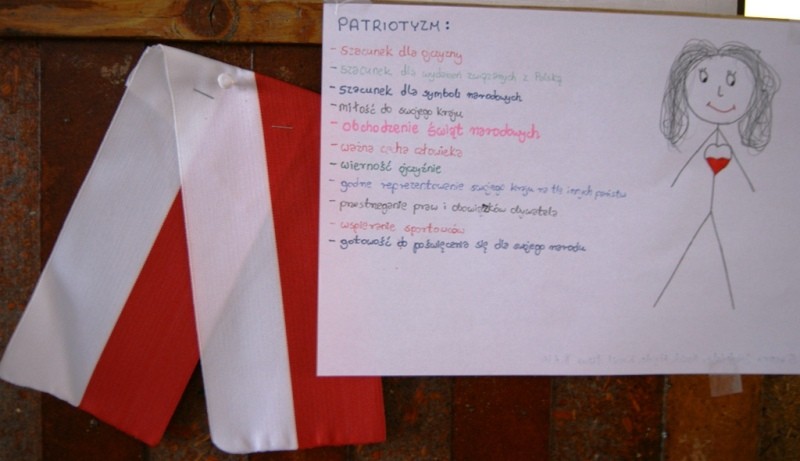 PATRIOTYZM:
- szacunek dla ojczyzny
- szacunek dla wydarzeń związanych z Polską
- szacunek dla symboli narodowych
- miłość do swojego kraju
- obchodzenie świąt narodowych
- ważna cecha człowieka
- wierność ojczyźnie
- godne reprezentowanie swojego kraju na tle innych państw
- przestrzeganie praw i obowiązków obywatela
- wspieranie sportowców
- gotowość do poświęcenia się dla swojego narodu